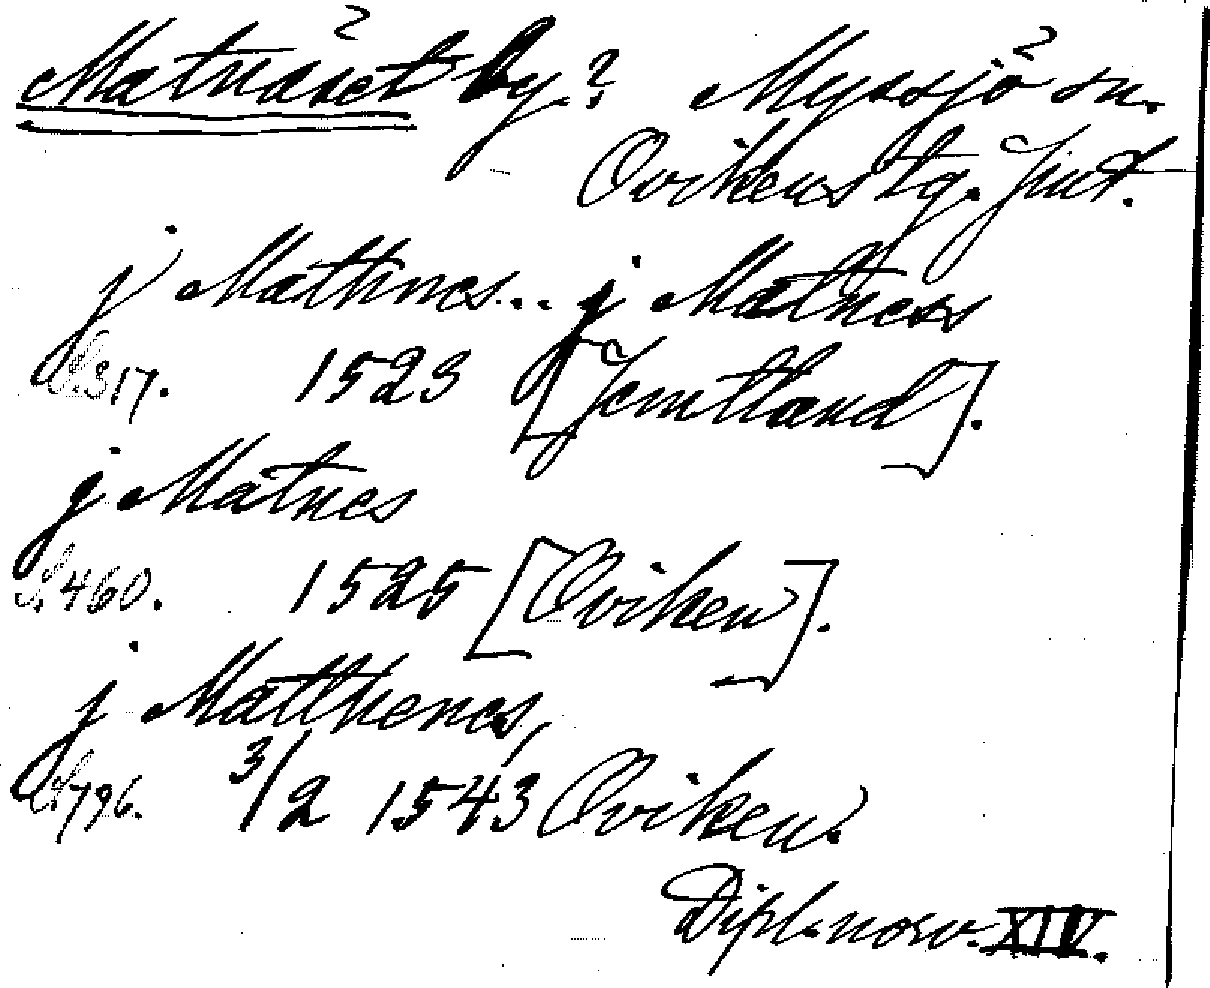 Matnäset by? Myssjö sn.
Ovikens tg. Jmt.
j Mathnes... j Matness
S. 317. 1523 [Jemtland].
j Matnes
S. 460. 1525 [Oviken].
j Matthenes,
S. 796. 3/2 1543 Oviken.
Dipl. norv. XIV.